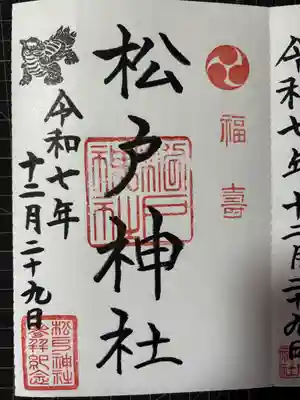 福壽
松戸神社
松戸神社
令和七年
十二月二十九日
松戸神社
参拝紀念
令和七年
十二月二十九日